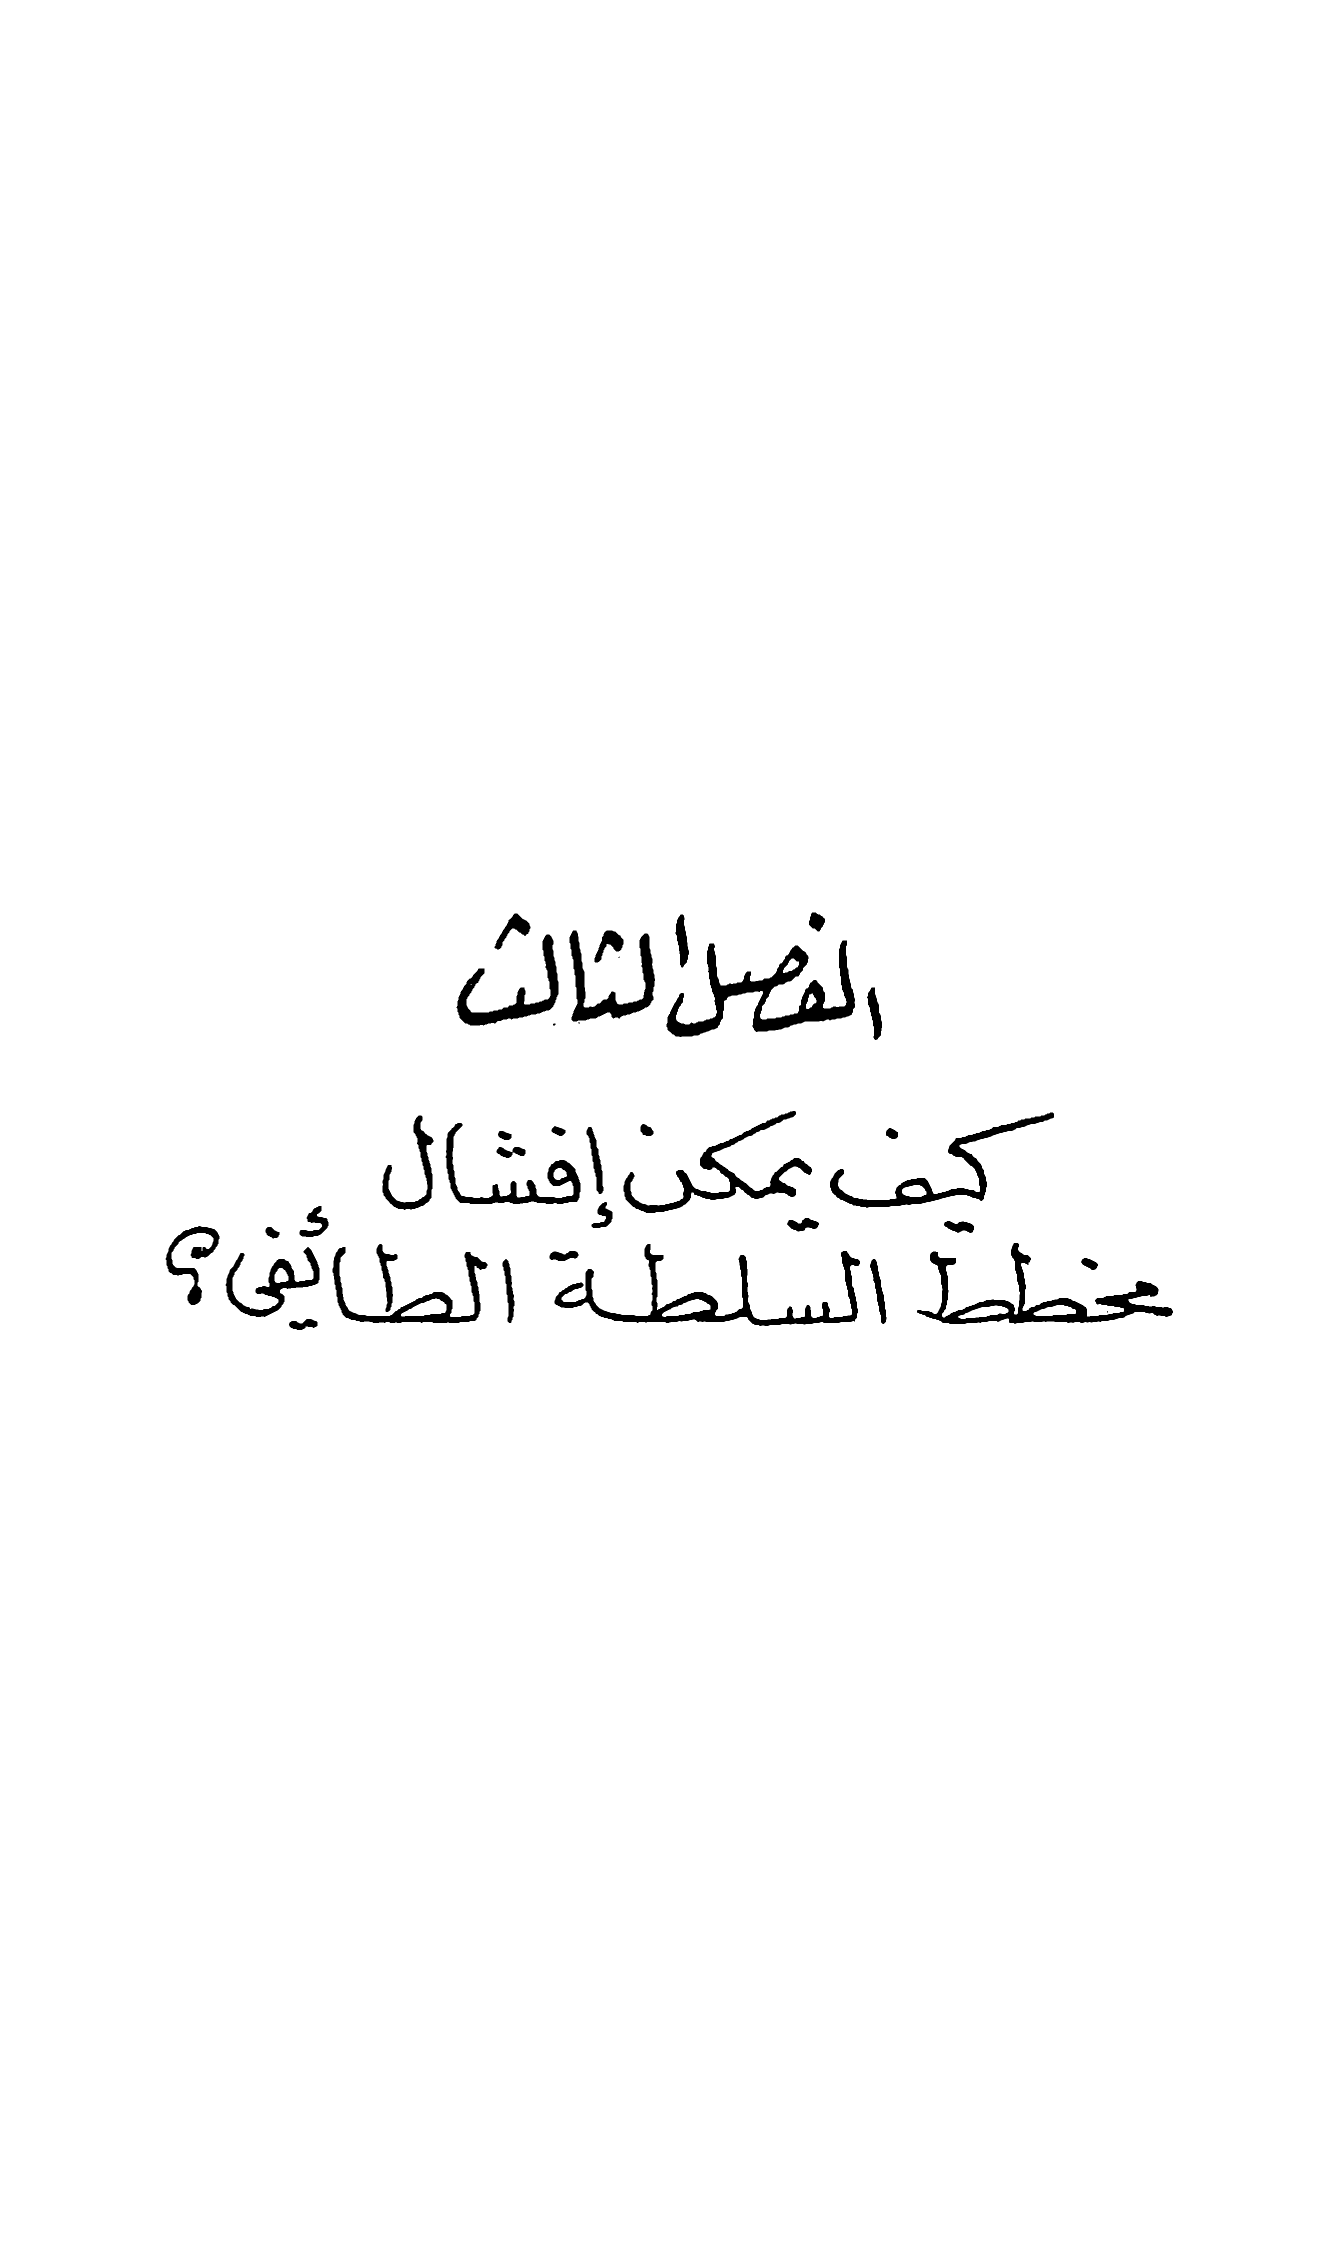 الفصل الثالث
كيف يمكن إفشال
مخطط السلطة الطائفي؟